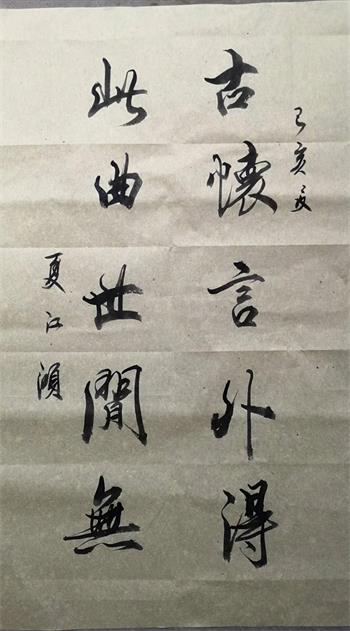 己亥夏
古懷言外得
此曲世間無
夏江